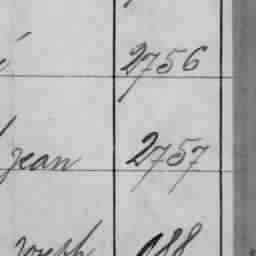 2756
Jean 2757
Joseph 088